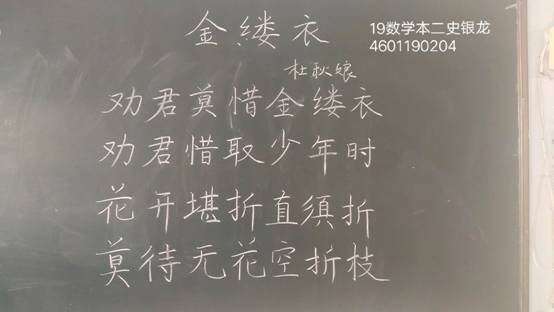 金缕衣
19数学本二史银龙
4601190204
杜秋娘
劝君莫惜金缕衣
劝君惜取少年时
花开堪折直须折
莫待无花空折枝